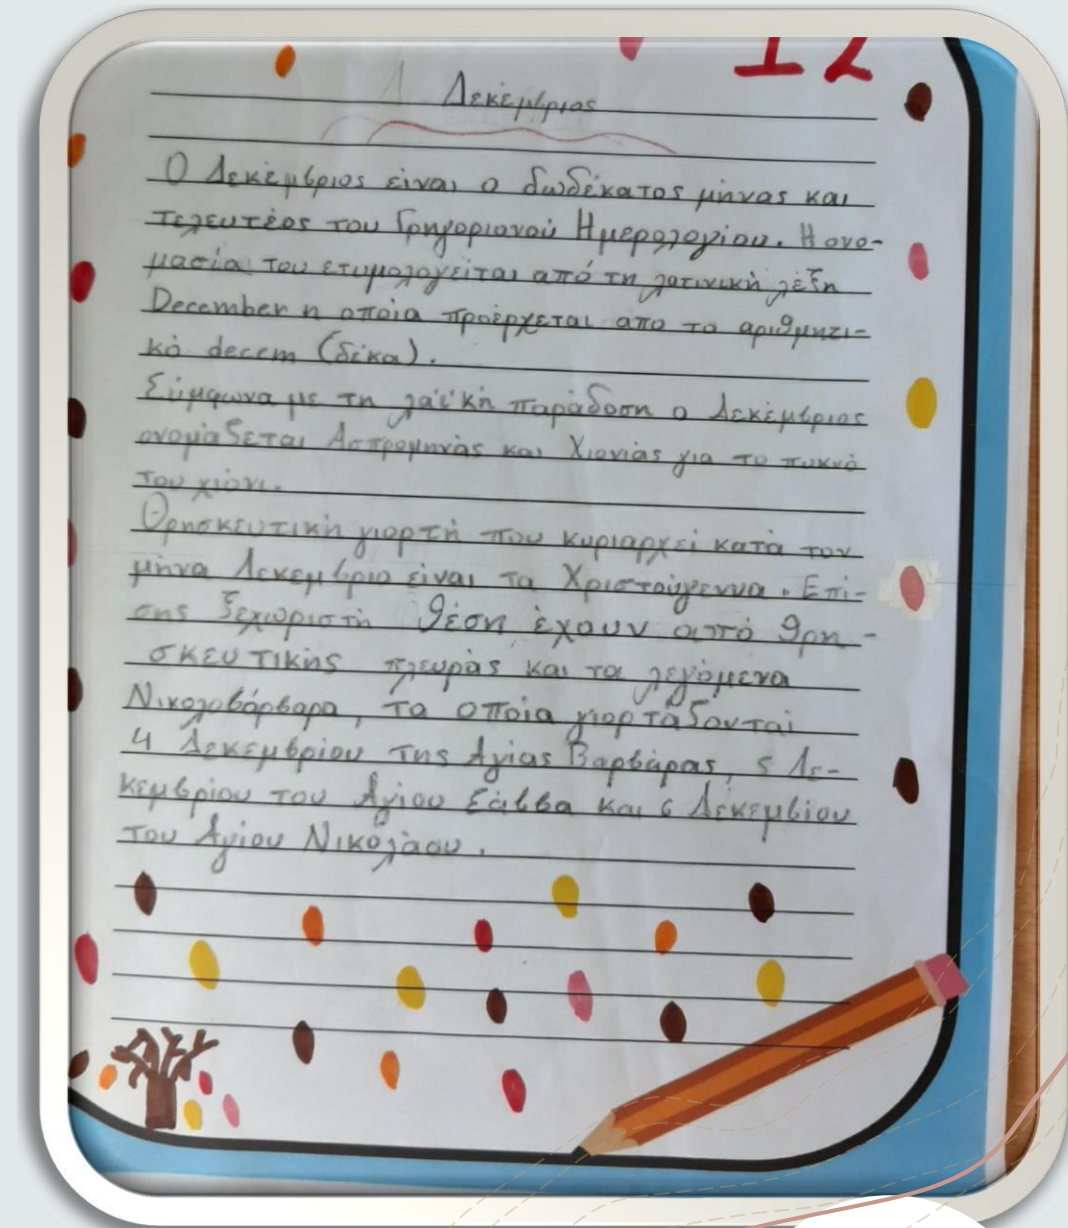 12
Δεκέμβριος
Ο Δεκέμβριος είναι ο δωδέκατος μήνας και
τελευτέος του Γρηγοριανού Ημερολογίου. Η ονο-
μασία του ετυμολογείται από τη λατινική λέξη
December η οποία προέρχεται απο το αριθμητι-
κό decem (δέκα).
Σύμφωνα με τη λαϊκή παράδοση ο Δεκέμβριος
ονομάζεται Ασπρομηνάς και Χιονιάς για το πυκνό
του χιόνι.
Θρησκευτική γιορτή που κυριαρχεί κατά τον
μήνα Δεκεμβριο είναι τα Χριστούγεννα. Επί-
σης ξεχωριστή θέση έχουν από θρη-
σκευτικής πλευράς και τα λεγόμενα
Νικολοβάρβαρα, τα οποία γιορτάζονται
4 Δεκεμβρίου της Αγίας Βαρβάρας, 5 Δε-
κεμβρίου του Αγίου Σάββα και 6 Δεκεμβίου
του Αγίου Νικολάου.